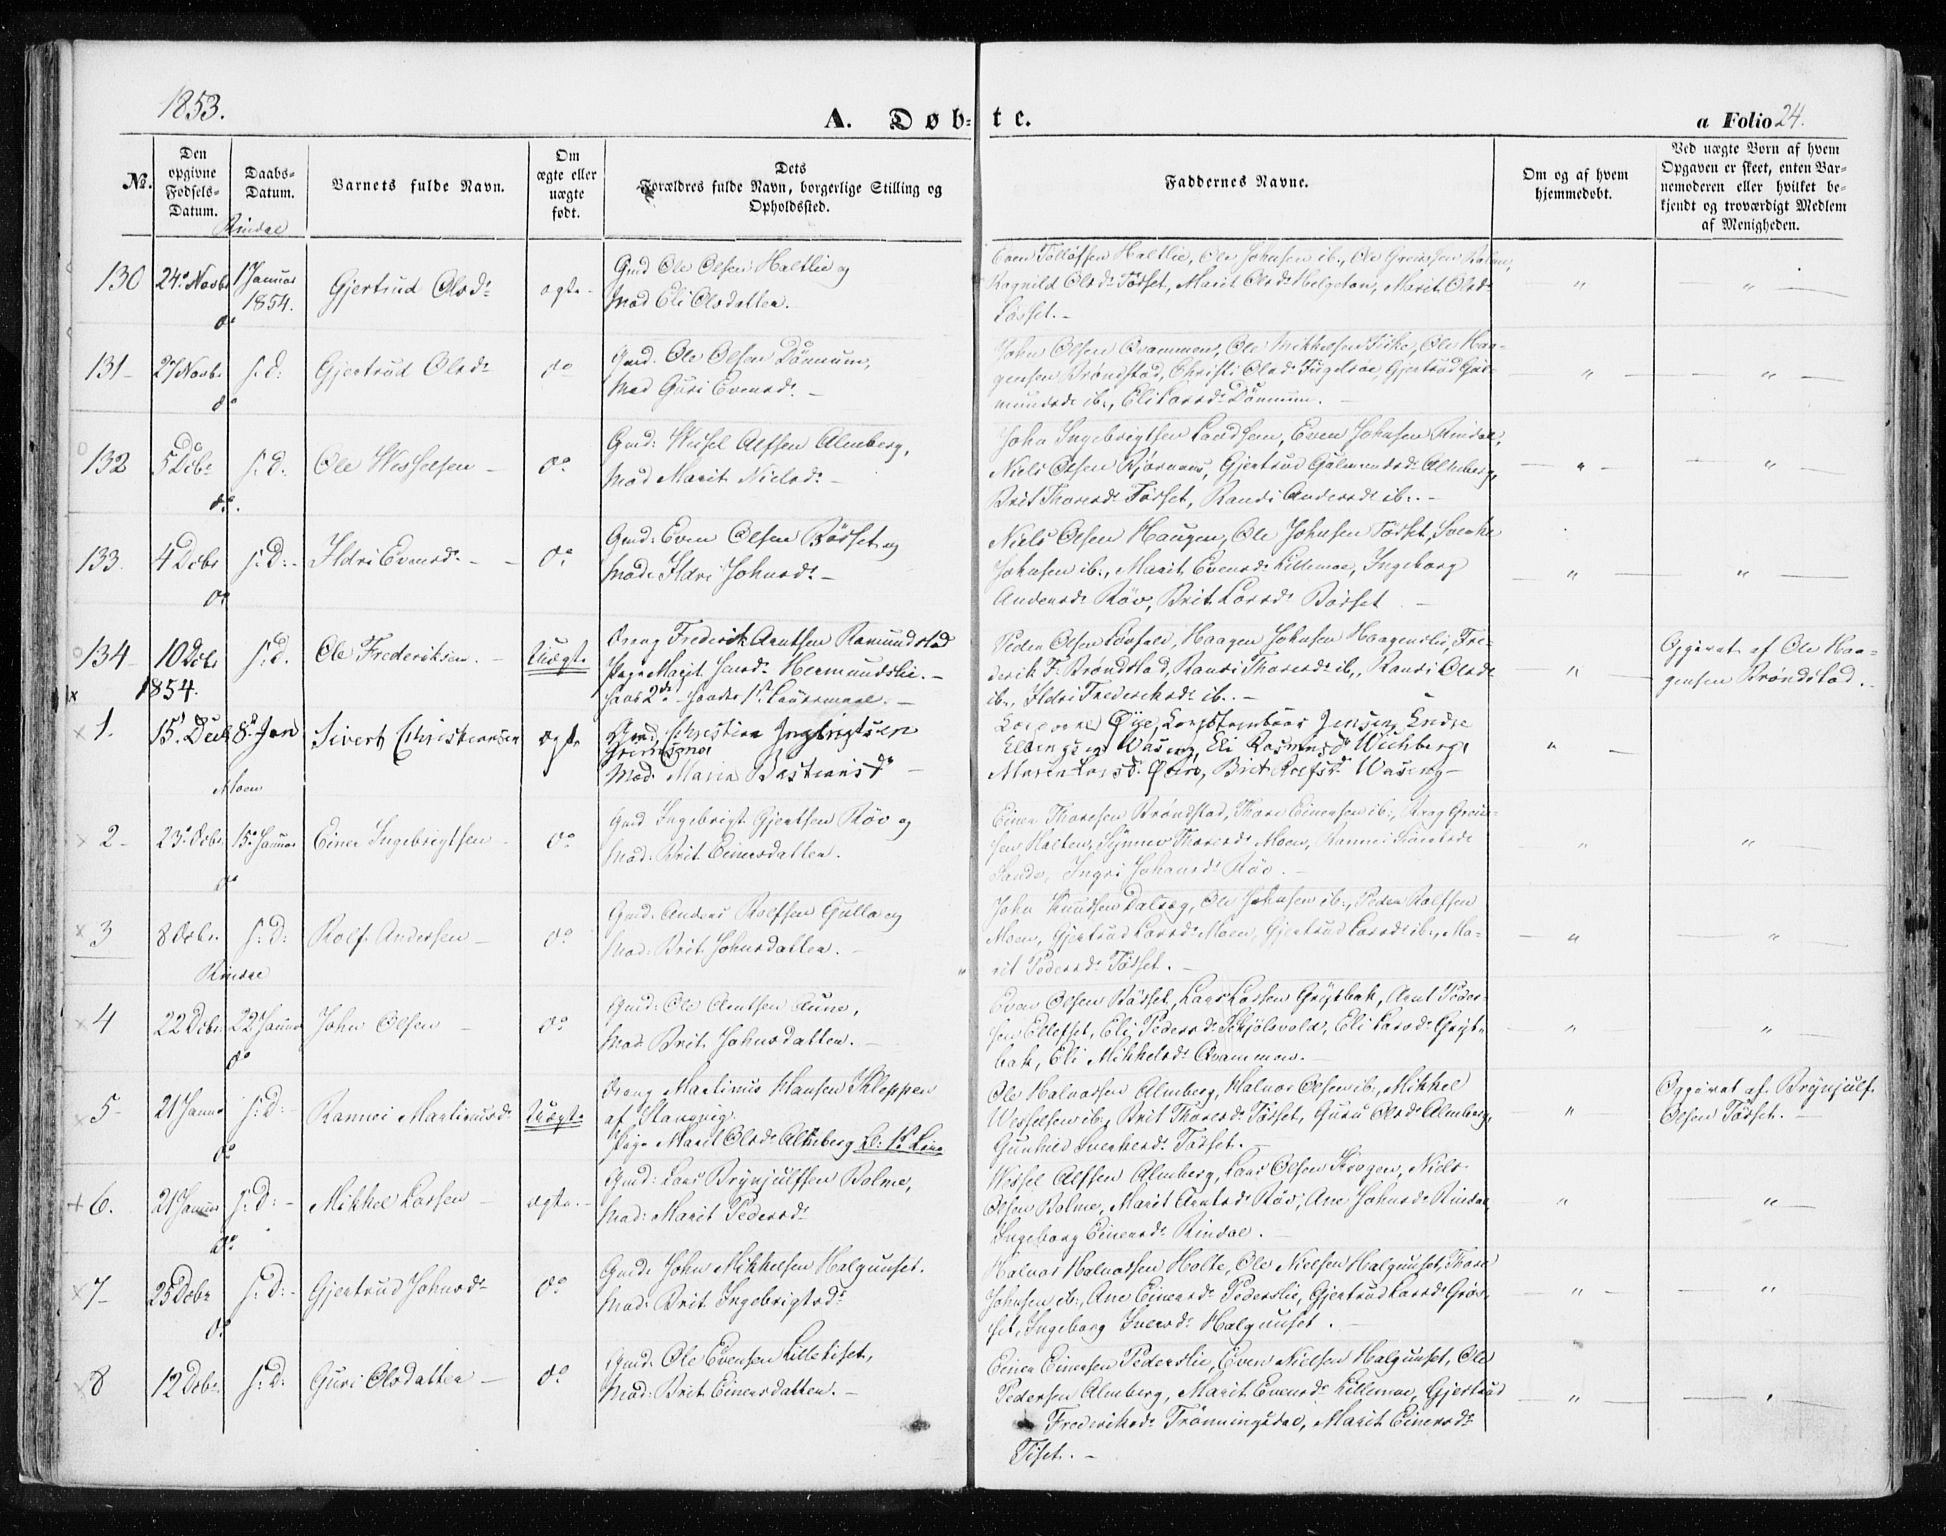 1853.
A. Døbte.
a Folio 24.
No.
Den opgivne Fødsels-Datum.
Daabs-Datum.
Barnets fulde Navn.
Om ægte eller uægte født.
Dets Forældres fulde Navn, borgerlige Stilling og Opholdssted.
Faddernes Navne.
Om og af hvem hjemmedøbt.
Ved uægte Børn af hvem Opgaven er skeet, enten Barnemoderen eller hvilket bekjendt og troværdigt Medlem af Menigheden.
Rindal
130 24de Novbr 1 Januar 1854. Gjertrud Olsdr ægte
Gmd Ole Olsen Haltlie og
Mad Eli Olsdatter.
Even Tølløfsen Haltlie, Ole Johnsen ib.,
Ragnild Olsdr Tøsset, Marit Olsdr Helgetøn, Marit Olsdr
Løsset. -
do
131 27 Novbr s. d: Gjertrud Olsdr do
Gmd: Ole Olsen Dønnum,
Mad Guri Evensdr. -
John Olsen Qvammen, Ole Mikkelsen Fiske, Ole Haa-
gensen Brøndstad, Christi Olsdr Fugelsøe, Gjertrud Gul-
mundsdr ib., Eli Larsdr Dønnum. -
do
132 5 Dcbr s: d. Ole Wesselsen do
Gmd: Wessel Alfsen Almberg,
Mad Marit Nielsdr -
John Ingebrigtsen Landsem, Even Johnsen Rindal,
Niels Olsen Bjørnaas, Gjertrud Gulmundsdr Almberg,
Brit Thoresdr Tøsset, Randi Andersdr ib. -
do.
133. 4 Dcbr s: D: - Ildri Evensdr - do
Gmd: Even Olsen Bøsset og
Mad: Ildri Johnsdr -
Niels Olsen Haugen, Ole Johnsen Tøsset, Svenke
Johnsen ib., Marit Evensdr Lillemoe, Ingeborg
Andersdr Røv, Brit Larsdr Bøsset. -
do
134 10 Dcbr s: d. Ole Frederiksen. - Uægte
Dreng Frederik Arntsen Romundstad
Pige Marit Larsdr Hermundslie. -
hans 2det hendes 1ste Leiermaal. -
Peder Olsen Løvslett, Haagen Johnsen Haagenslie, Fre-
derik F: Brøndstad, Randi Thoresdr ib., Randi Olsdr
ib., Ildri Frederiksdr ib. -
Opgivet af Ole Haa-
gensen Brøndstad. -
1854.
1. 15' Decb 8de Jan Sivert Christiansen ægte
Gmd: Christian Ingbrigtsen
Grimsmo
Mad: Maria Bastiansdr -
Øye, Jensen, Endre
Erlingsen Waseng, Eli Rasmusdr Wichberg,
Maren Larsd. Øvre, Brit Rolfsd. Waseng -
Moen
2 - 23de Dcbr. 15de Januar Einer Ingebrigtsen do
Gmd Ingebrigt Gjertsen Røv og
Mad: Brit Einersdatter.
Einer Thoresen Brøndstad, Thore Einersen ib.,
sen Holten, Synnev Thoresdr Moen, Rannei Sivertsdr
Sande, Ingri Johansdr Røv. -
do
3 8 Dcbr. s: D: Rolf Andersen - do
Gmd: Anders Rolfsen Gulla og
Mad: Brit Johnsdatter. -
John Knudsen Dalsæg, Ole Johnsen ib., Peder Rolfsen
Moen, Gjertrud Larsdr Moen, Gjertrud Larsdr ib., Ma-
rit Pedersdr Tøsset. -
Rindal
4 22 Dcbr. 22 Januar John Olsen - do
Gmd: Ole Arntsen Tune,
Mad: Brit Johnsdatter. -
Even Olsen Bøsset, Lars Larsen Grytbak, Arnt Peder-
sen Elletset, Eli Pedersdr Skjølsvold, Eli Larsdr Gryt-
bak, Eli Mikkelsdr Qvammen. -
do
5 - 21 Januar s: D: - Rannei Martinusdr Uægte
Dreng Martinus Hansen Kleppen
af Stangvig
Pige Marit Olsdr Almberg
Ole Halvorsen Almberg, Halvor Olsen ib., Mikkel
Wesselsen ib., Brit Thoresdr Tøsset, Guru Olsdr Almberg,
Gunhild Svenkesdr Tøsset. -
Opgivet af Brynjulf
Olsen Tøsset. -
do
6. 21 Januar s: D: - Mikkel Larsen - ægte -
Gmd: Lars Brynjulfsen Bolme,
Mad: Marit Pedersdr
Wessel Alfsen Almberg, Lars Olsen Krogen, Niels
Olsen Bolme, Marit Arntsdr Røv, Ane Johnsdr Rindal,
Ingeborg Einersdr Rindal. -
do
7 - 25 Dcbr s: D: - Gjertrud Johnsdr do
Gmd: John Mikkelsen Halgunset.
Mad: Brit Ingebrigtsdr
Halvor Halvorsen Holte, Ole Nielsen Halgunset, Thore
Johnsen ib., Ane Einersdr Pederslie, Gjertrud Larsdr Grøs-
set, Ingeborg Iversdr Halgunset. -
do
8 12 Dcbr. s: D: Guri Olsdatter - do
Gmd: Ole Evensen Lilletiset,
Mad: Brit Einersdatter. -
Einer Einersen Pederslie, Even Nielsen Halgunset, Ole
Pedersen Almberg, Marit Evensdr Lillemoe, Gjertrud
Frederiksdr Trønningsdal, Marit Einersdr
Tiset. -